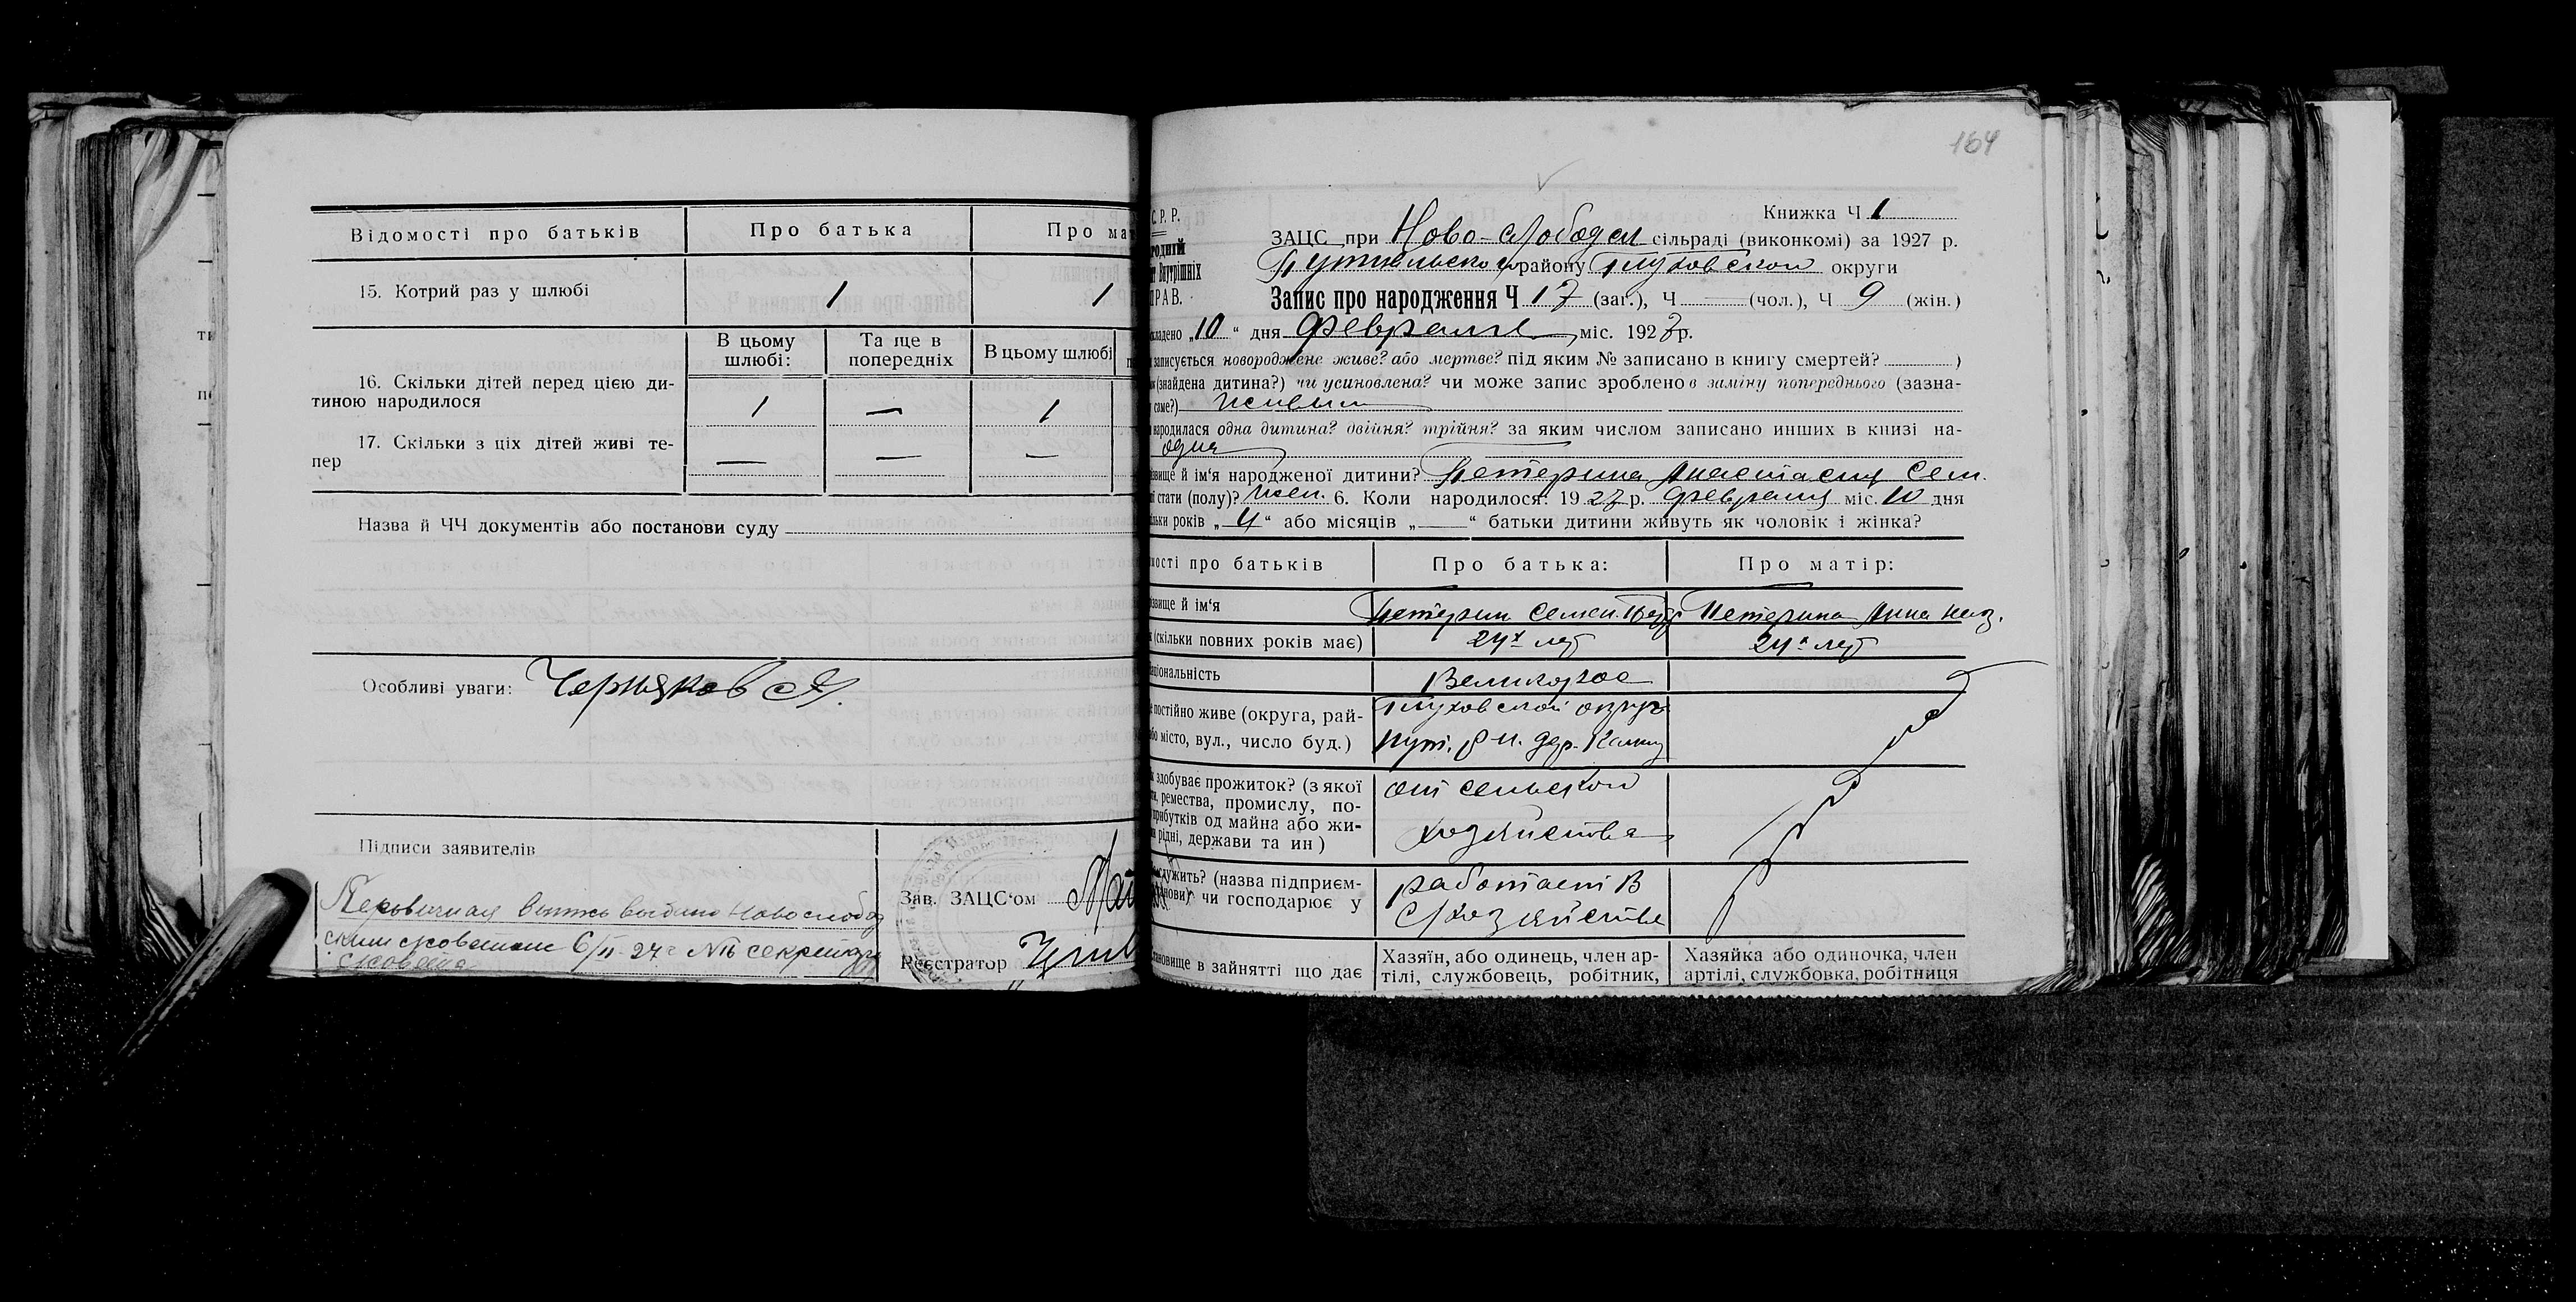 Відомості про батьків
Про батька
Про мат
15. Котрий раз у шлюбі
1
1
В цьому шлюбі:
Та ще в попередніх
В цьому шлюбі
16. Скільки дітей перед цією ди-
тиною народилося
1
—
1
17. Скільки з ціх дітей живі те-
пер
—
—
—
Назва й ЧЧ документів або постанови суду
Особливі уваги: Черняков
Підписи заявителів
Первичная выпись выдана Новослобод
ским с/советом 6/II-27г №16 секретарь
с/совета
Зав. ЗАЦС‘ом
Реєстратор
164
С.Р.Р.
Книжка Ч 1
ЗАЦС при Ново-слободск сільраді (виконкомі) за 1927 р.
Внутрішніх
Путивльского району Глуховской округи
ПРАВ.
Запис про народження Ч 17 (заг.), Ч — (чол.), Ч 9 (жін.)
кладено „10“ дня Февраля міс. 1927р.
записується новороджене живе? або мертве? під яким № записано в книгу смертей? )
(знайдена дитина?) чи усиновлена? чи може запис зроблено в заміну попереднього (зазна-
саме?) живым
народилася одна дитина? двійня? трійня? за яким числом записано инших в книзі на-
одна
звище й ім‘я народженої дитини? Петерина Анастасия Сем.
стати (полу)? жен. 6. Коли народилося: 1927р. Февраля міс. 10 дня
льки років „4“ або місяців „—“ батьки дитини живуть як чоловік і жінка?
мості про батьків
Про батька:
Про матір:
звище й ім‘я
Петерин Семен
Петерина Анна
(скільки повних років має)
24х лет
24х лет
аціональність
Великорос
постійно живе (округа, рай-
або місто, вул., число буд.)
Глуховской округ
Пут. р-н. дер.
здобуває прожиток? (з якої
ремества, промислу, по-
прибутків од майна або жи-
рідні, держави та ин)
от сельского
хозяйства
служить? (назва підприєм-
анови) чи господарює у
работает в
с/хозяйстве
ановище в зайнятті що дає
Хазяїн, або одинець, член ар-
тілі, службовець, робітник,
Хазяйка або одиночка, член
артілі, службовка, робітниця